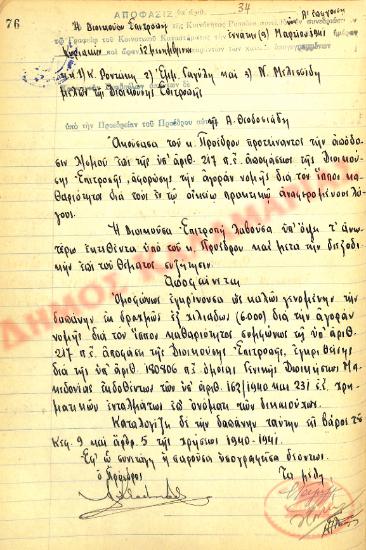 ΑΠΟΦΑΣΙΣ ὑπ' ἀριθ. 34
76
Ἡ Διοικοῦσα Ἐπιτροπὴ
Μαρτίου 1941
Κυριακὴν
1) Κ. 2) Ἐμμ. καὶ 3) Ν.
μέλη τῆς Διοικούσης Ἐπιτροπῆς
ὑπὸ τὴν Προεδρείαν τοῦ Προέδρου αὐτῆς Α. Θεοδοσιάδη
Ἀκούσασα τοῦ κ. Προέδρου προτείναντος τὴν ἀπόδο-
σιν λ/σμοῦ τῆς ὑπ' ἀριθ. 217 π.ἔ. ἀποφάσεως τῆς Διοικού-
σης Ἐπιτροπῆς, ἀφορώσης τὴν ἀγορὰν νομῆς διὰ τὸν ἵππον κα-
θαριότητος διὰ τοὺς ἐν τῷ οἰκείῳ πρακτικῷ ἀναφερομένους λό-
γους.
Ἡ Διοικοῦσα Ἐπιτροπὴ λαβοῦσα ὑπ' ὄψει τ' ἀνω-
τέρω ἐκτεθέντα ὑπὸ τοῦ κ. Προέδρου καὶ μετὰ τὴν διεξοδι-
κὴν ἐπὶ τοῦ θέματος συζήτησιν.
Ἀποφαίνεται
Ὁμοφώνως ἐγκρίνουσα ὡς καλῶς γενομένην τὴν
δαπάνην ἐκ δραχμῶν ἓξ χιλιάδων (6000) διὰ τὴν ἀγορὰν
νομῆς διὰ τὸν ἵππον καθαριότητος συμφώνως τῇ ὑπ' ἀριθ.
217 π.ἔ. ἀποφάσει τῆς Διοικούσης Ἐπιτροπῆς, ἐγκριθείσης
διὰ τῆς ὑπ' 180806 π.ἔ. ὁμοίας Γενικῆς Διοικήσεως Μα-
κεδονίας ἐκδοθέντων τῶν ὑπ' ἀριθ. 162/1940 καὶ 231 ἐ.ἔ. χρη-
ματικῶν ἐνταλμάτων ἐπ' ὀνόματι τῶν δικαιούχων.
Καταλογίζει δὲ τὴν δαπάνην ταύτην εἰς βάρος τοῦ
Κεφ. 9 καὶ ἄρθρ. 5 τῆς χρήσεως 1940-1941.
Ἐφ' ᾧ συνετάγη ἡ παροῦσα ὑπογραφεῖσα δεόντως.
ὁ Πρόεδρος Τὰ μέλη
ΔΗΜΟΣ ΚΑΛΑΜΑΡΙΑΣ